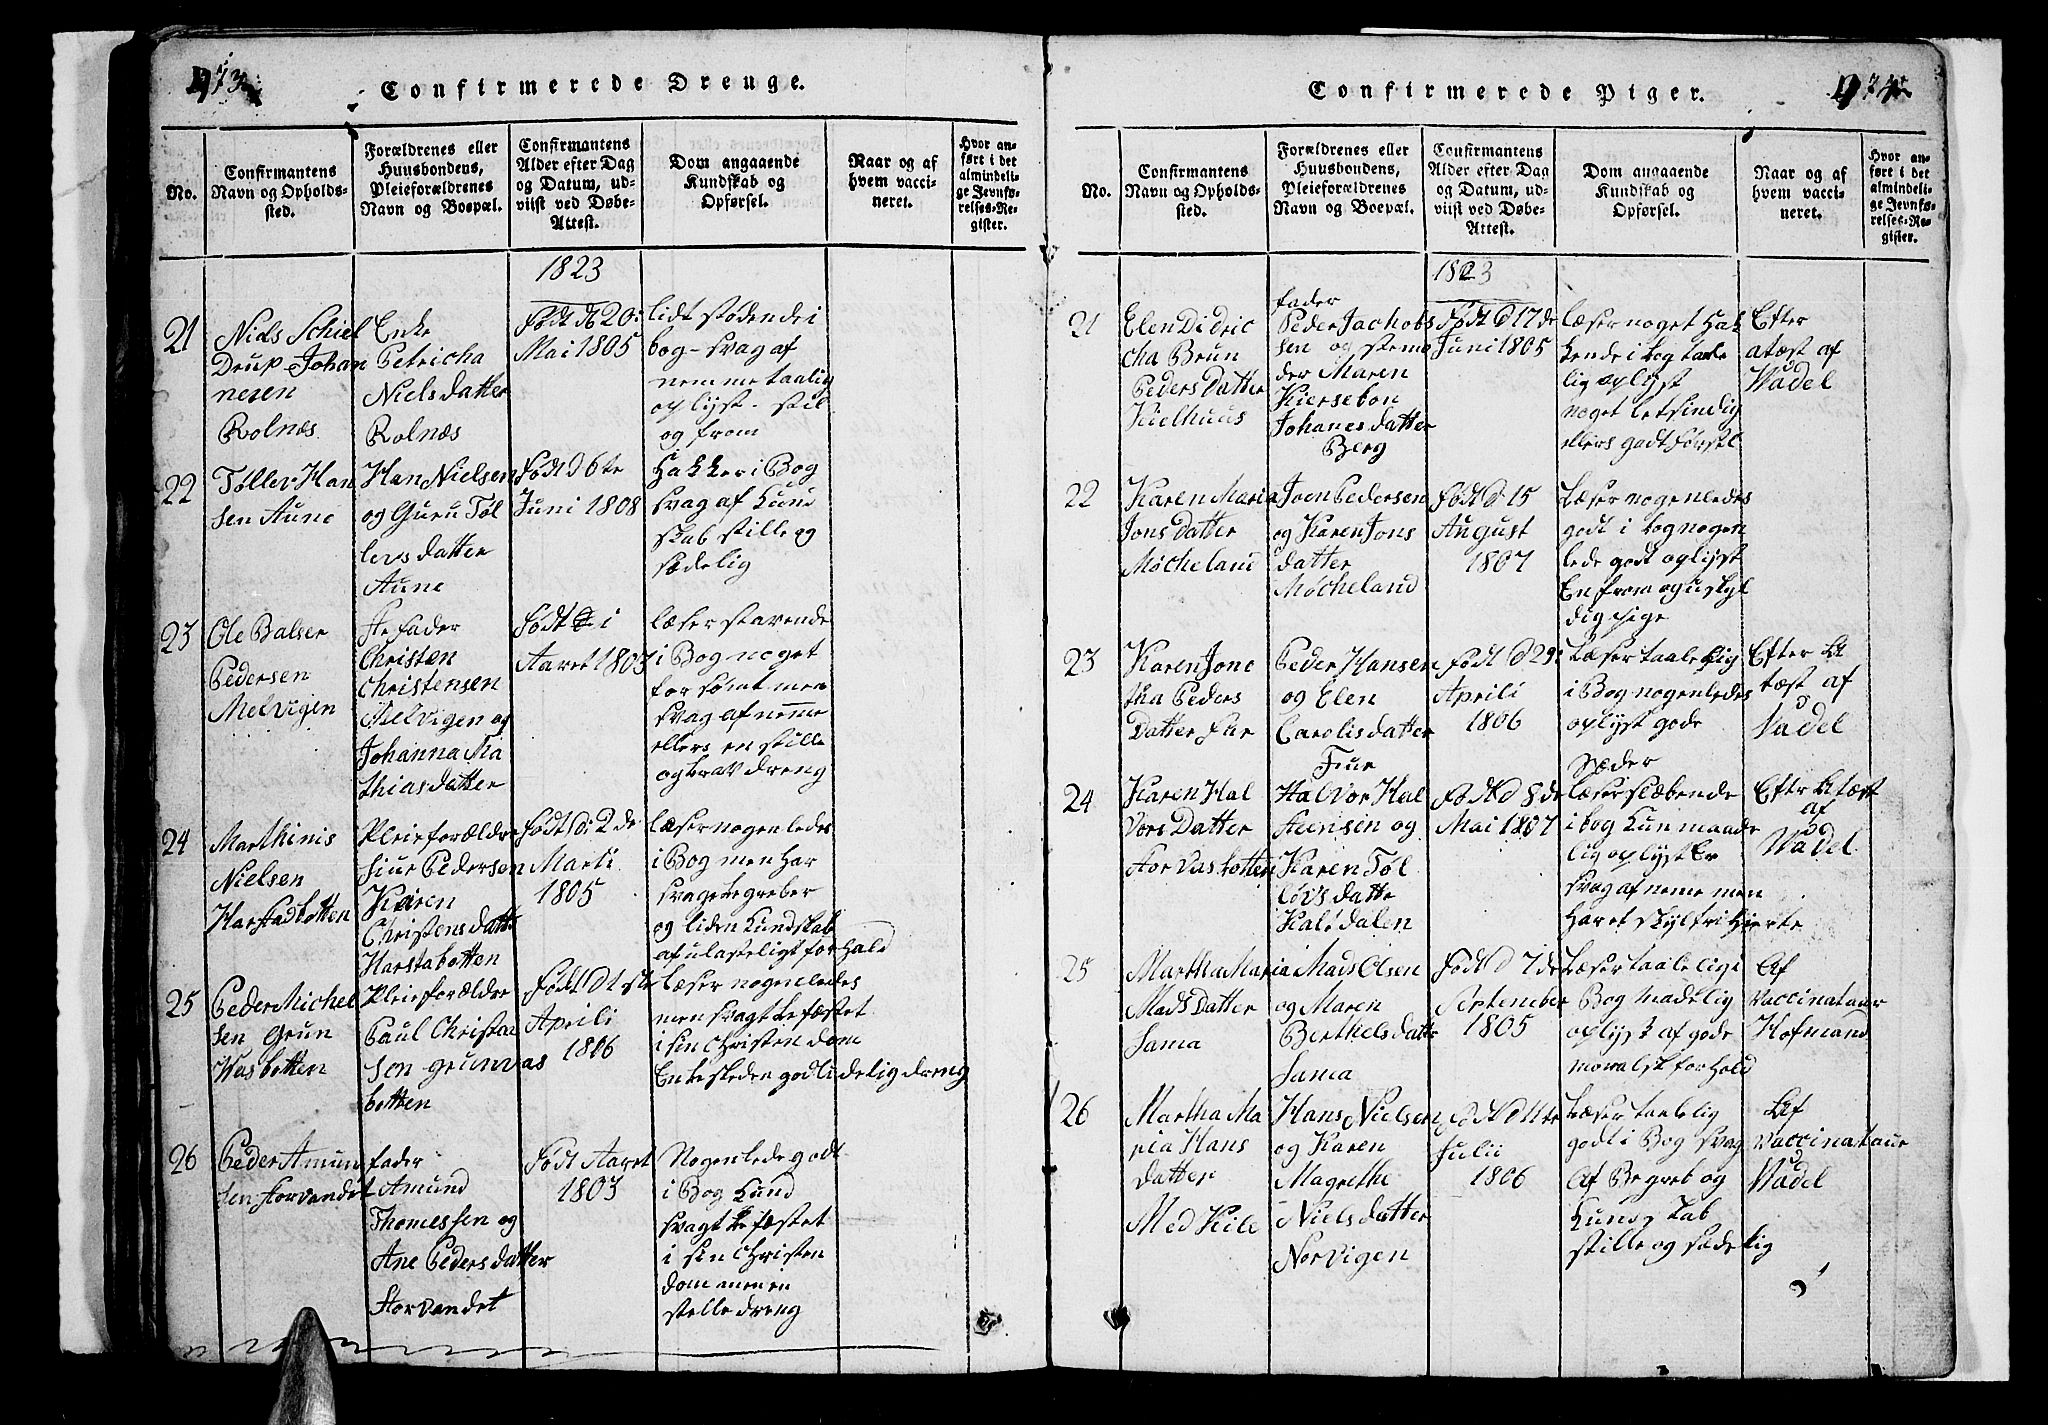 Confirmerede Drenge.
No.
Confirmantens
Navn og Opholds-
sted.
Forældrenes eller
Huusbondens,
Pleieforældrenes
Navn og Boepæl.
Confirmantens
Alder efter Dag
og Datum, ud-
viist ved Døbe-
Attest.
Dom angaaende
Kundskab og
Opførsel.
Naar og af
hvem vacci-
neret.
Hvor an-
ført i det
almindeli-
ge Jevnfø-
relses-Re-
gister.
1823
21
Niels Schiel
Drup Johan
nesen
Rolnæs
Enke
Petricha
Nielsdatter
Rolnæs
Født d 20:
Mai 1805
lidt stødende i
bog - svag af
nemme taalig
oplyst. stil
og from
22
Tøllev Han
sen Aune
Han Nielsen
og Guru Tøl
levs datter
Aune
Født D 6te
Juni 1808
Hakker i Bog
svag af Kund
skab stille og
sædelig
23
Ole Balser
Pedersen
Melvigen
Ste fader
Christen
Christensen
Melvigen og
Johanna Ma
thias datter
Født i
Aaret 1803
læser stavende
i Bog noget
for sømt men
svag af nemme
ellers en stille
og brav dreng
24
Marthinis
Nielsen
Harstadbotten
Pleieforældre
Siur Pedersen
Karen
Christens datte
Harstabotten
Født Di 2 de
Marti
1805
læser nogenledes
i Bog men Har
svage begreber
og liden Kundskab
af ulasteligt forhold
25
Peder Michel
sen Grun
Wasbotten
Pleieforældre
Paul Christen
sen grunvas
botten
Født D 1 ste
Aprili
1806
læser nogenledes
men svagt befæstet
i sin Christen dom
En beskeden godlidelig dreng
26
Peder Amun
sen Storvandet
fader
Amund
Thomessen og
Ane Peders datter
Storvandet
Født Aaret
1803
Nogenlede godt
i Bog Kund
svagt befæstet
i sin Christen
dom men en
stelle dreng
Confirmerede Piger.
No.
Confirmantens
Navn og Opholds-
sted.
Forældrenes eller
Huusbondens,
Pleieforældrenes
Navn og Boepæl.
Confirmantens
Alder efter Dag
og Datum, ud-
viist ved Døbe-
Attest.
Dom angaaende
Kundskab og
Opførsel.
Naar og af
hvem vacci-
neret.
Hvor an-
ført i det
almindeli-
ge Jevnfø-
relses-Re-
gister.
1823
21
Elen Didric
cha Brun
Peders Datter
Kielhuus
fader
Peder Jachobs
sen og stemo
der Maren
Kiersebon
Johanes datter
Berg
Født D 17 de
Juni 1805
læser noget Hak
kende i bog taale
lig oplyst
noget letsindig
ellers godt
Efter
atæst af
Wadel
22
Karen Maria
Jons Datter
Møcheland
Joen Pedersen
og Karen Jons
datter
Møcheland
Født D 15
August
1807
Læser nogenledes
godt i bog nogen
lede godt oplyst
En from og uskyl
dig pige
23
Karen Jone
tha Peders
Datter Fur
Peder Hansen
og Elen
Carolis datter
Fur
Født D 29:
Aprili
1806
Læser taalelig
i Bog nogenledes
oplyst gode
sæder
Efter At
tæst af
Wadel
24
Karen Hal
Vors Datter
Storvasbotten
Halvor Hal
steensen og
Karen Tøl
løvs datte
Kalsdalen
Født D 8 de
Mai 1807
læser slæbende
i bog Kun maade
lig oplyst Er
svag af neme men
Har et skyltfri Hierte
Efter Atæst
af
Wadel
25
Martha Maria
Mads Datter
Sama
Mads Olsen
og Maren
Berthels datte
Sama
Født D 7 de
September
1805
Læser taalelig i
Bog madelig
oplyst af gode
moralsk forhold
Af
Vaccinatuur
Hofmand
26
Martha Ma
ria Hans
datter
Med Kile
Hans Nielsen
og Karen
Magrethe
Niels datter
Norvigen
Født D 11te
Julii
1806
Læser taalelig
godt i Bog svag
Af Begreb og
Kundskab
stille og sædelig
Af
Vaccinatuur
Wadel